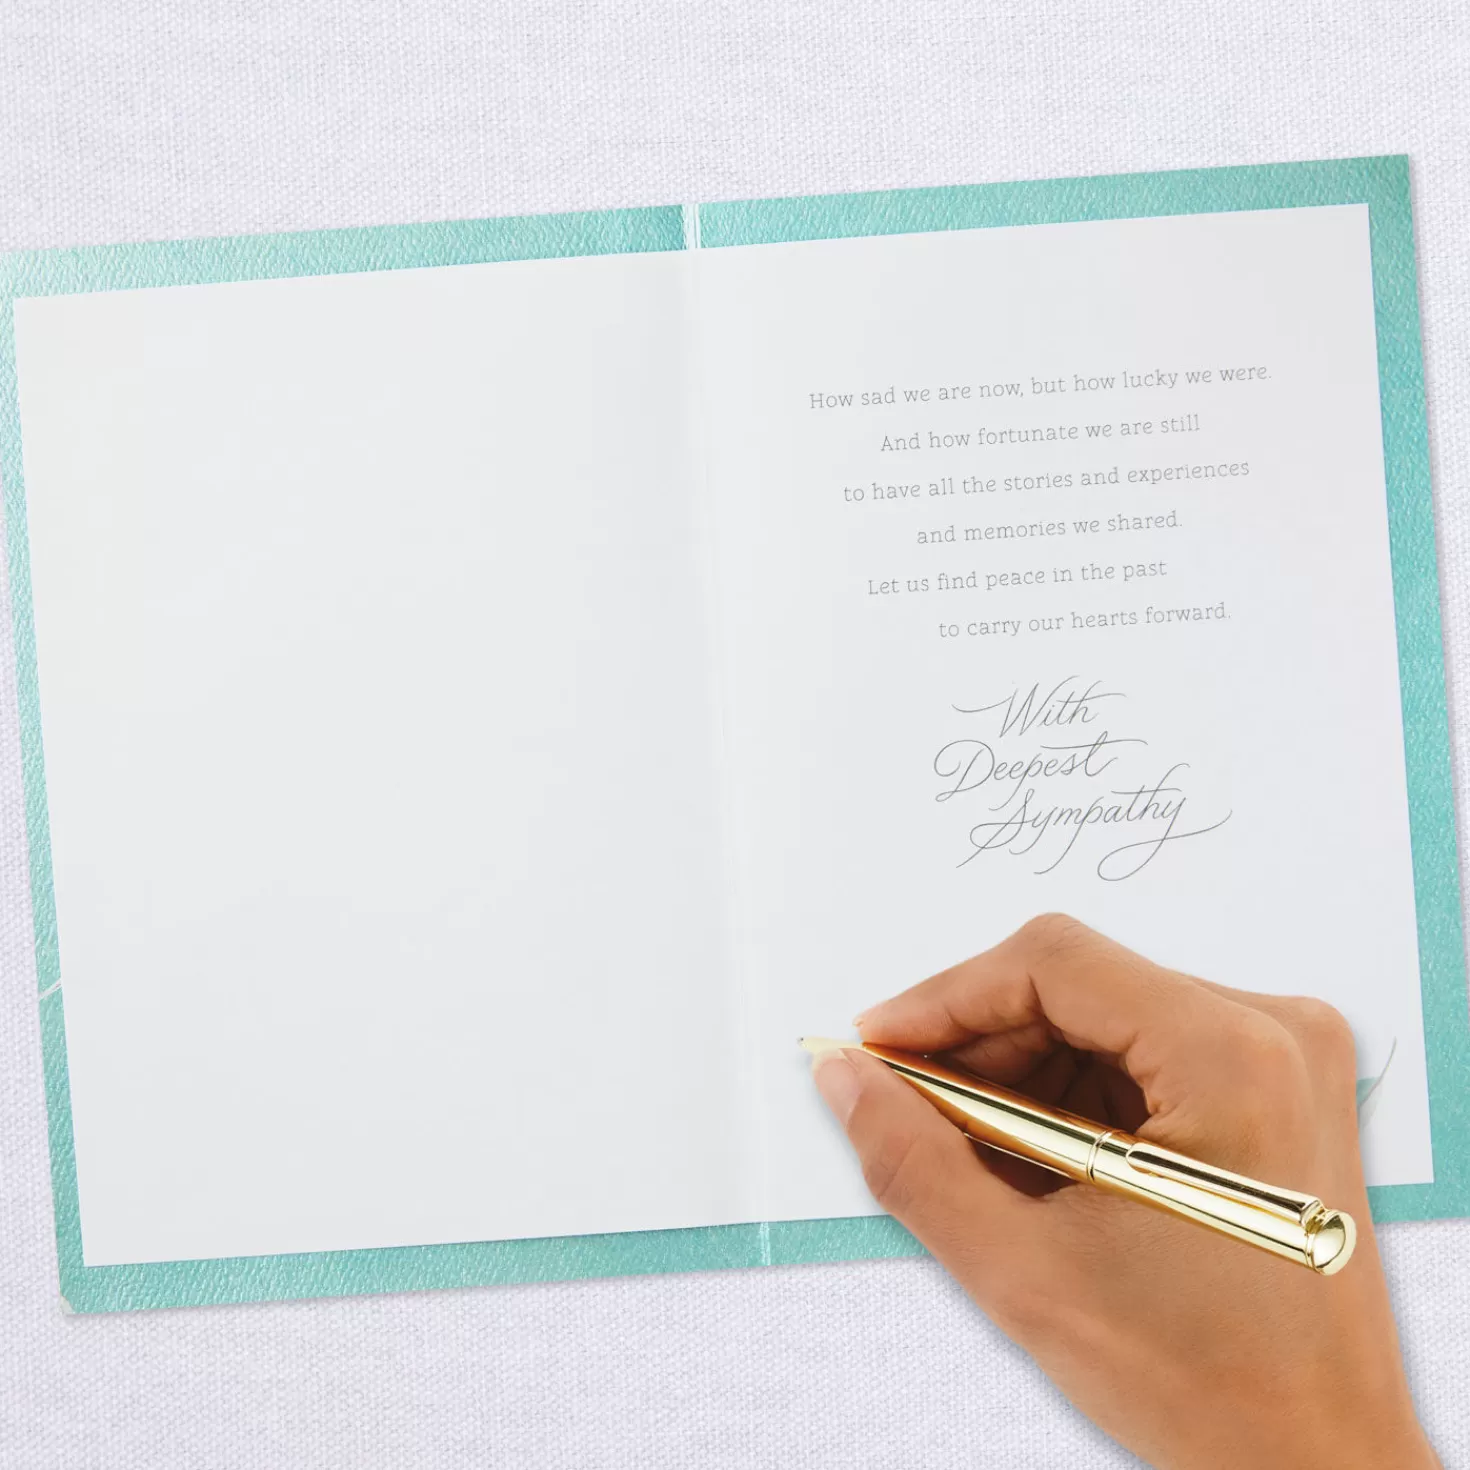 How sad we are now, but how lucky we were.
And how fortunate we are still
to have all the stories and experiences
and memories we shared.
Let us find peace in the past
to carry our hearts forward.
With
Deepest
Sympathy